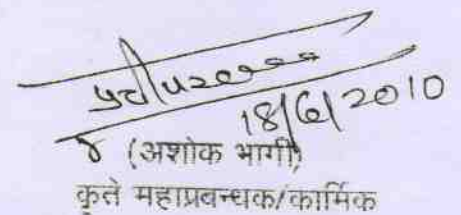 18/6/2010
(अशोक भागी)
कृते महाप्रबन्धक/कार्मिक